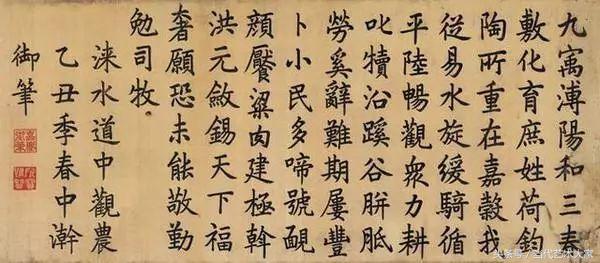 九寓溥陽和三春
敷化育庶姓荷鈞
陶所重在嘉穀我
從易水旋緩騎循
平陸暢觀衆力耕
叱犢沿蹊谷胼胝
勞奚辭難期屢豐
卜小民多啼號靦
顏饜粱肉建極斡
洪元斂錫天下福
奢願恐未能敬勤
勉司牧
淶水道中觀農
乙丑季春中澣
御筆
嘉慶御筆
头条号/代艺术大家